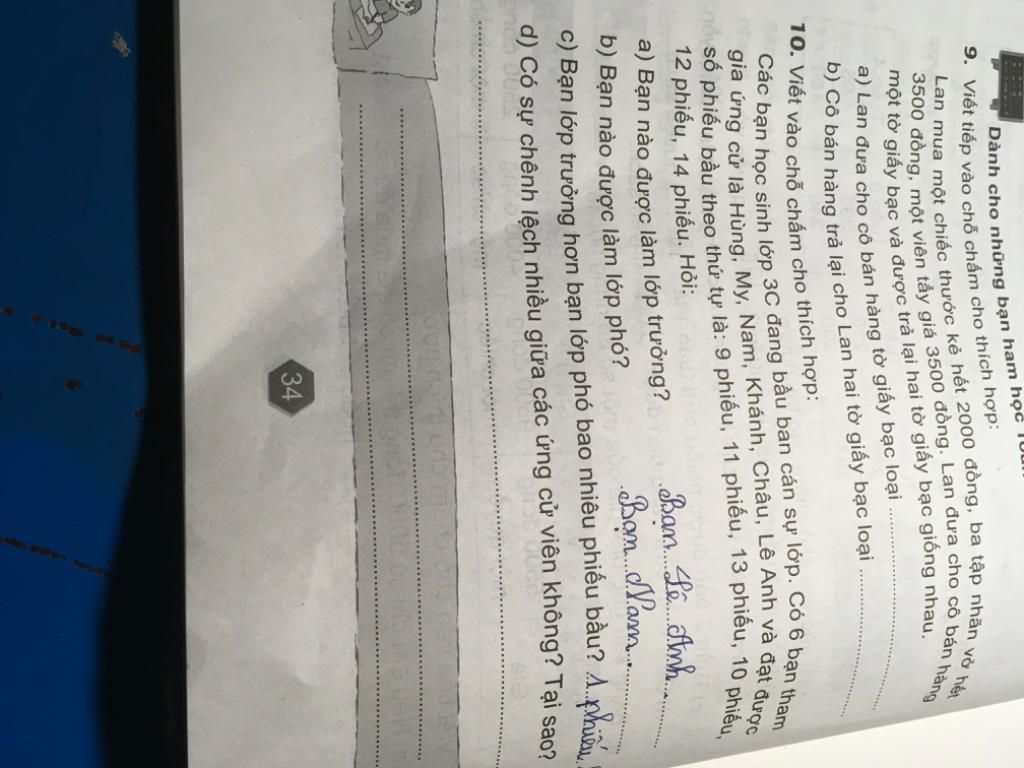 Dành cho những bạn ham học
9. Viết tiếp vào chỗ chấm cho thích hợp:
Lan mua một chiếc thước kẻ hết 2000 đồng, ba tập nhãn vở hết
3500 đồng, một viên tẩy giá 3500 đồng. Lan đưa cho cô bán hàng
một tờ giấy bạc và được trả lại hai tờ giấy bạc giống nhau.
a) Lan đưa cho cô bán hàng tờ giấy bạc loại ........................
b) Cô bán hàng trả lại cho Lan hai tờ giấy bạc loại ........................
10. Viết vào chỗ chấm cho thích hợp:
Các bạn học sinh lớp 3C đang bầu ban cán sự lớp. Có 6 bạn tham
gia ứng cử là Hùng, My, Nam, Khánh, Châu, Lê Anh và đạt được
số phiếu bầu theo thứ tự là: 9 phiếu, 11 phiếu, 13 phiếu, 10 phiếu,
12 phiếu, 14 phiếu. Hỏi:
a) Bạn nào được làm lớp trưởng? Bạn Lê Anh
b) Bạn nào được làm lớp phó? Bạn Nam.
c) Bạn lớp trưởng hơn bạn lớp phó bao nhiêu phiếu bầu? 1 phiếu
d) Có sự chênh lệch nhiều giữa các ứng cử viên không? Tại sao?
34